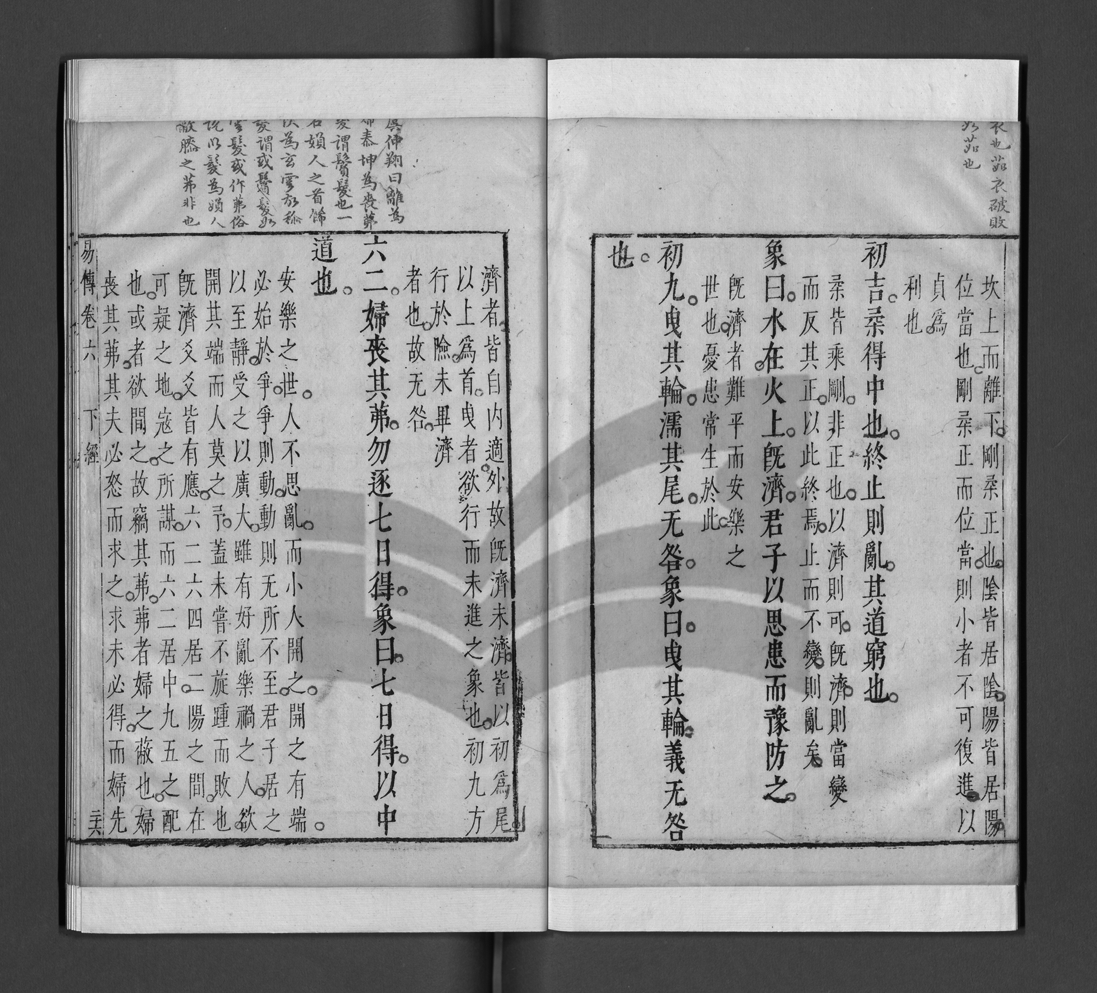 衣也茹衣破敗
如茹也
坎上而離下剛柔正也陰皆居陰陽皆居陽
位當也剛柔正而位當則小者不可復進以
貞爲
利也
初吉柔得中也終止則亂其道窮也
柔皆乘剛非正也以濟則可旣濟則當變
而反其正以此終焉止而不變則亂矣
象曰水在火上旣濟君子以思患而豫防之
旣濟者難平而安樂之
世也憂患常生於此
初九曳其輪濡其尾无咎象曰曳其輪義无咎
也
濟者皆自內適外故旣濟未濟皆以初爲尾
以上爲首曳者欲行而未進之象也初九方
行於險未畢濟
者也故无咎
六二婦喪其茀勿逐七日得象曰七日得以中
道也
安樂之世人不思亂而小人開之開之有端
必始於爭爭則動動則无所不至君子居之
以至靜受之以廣大雖有好亂樂禍之人欲
開其端而人莫之予蓋未嘗不旋踵而敗也
旣濟爻爻皆有應六二六四居二陽之間在
可疑之地寇之所謀而六二居中九五之配
也或者欲間之故竊其茀茀者婦之蔽也婦
喪其茀其夫必怒而求之求未必得而婦先
易傳卷六
下經
二六
虞仲翔曰離爲
婦泰坤爲喪茀
髮謂鬢髮也一
名婦人之首飾
坎爲玄雲故稱
髮謂或鬒髮如
雲髮或作茀俗
說以髮爲婦人
蔽膝之茀非也